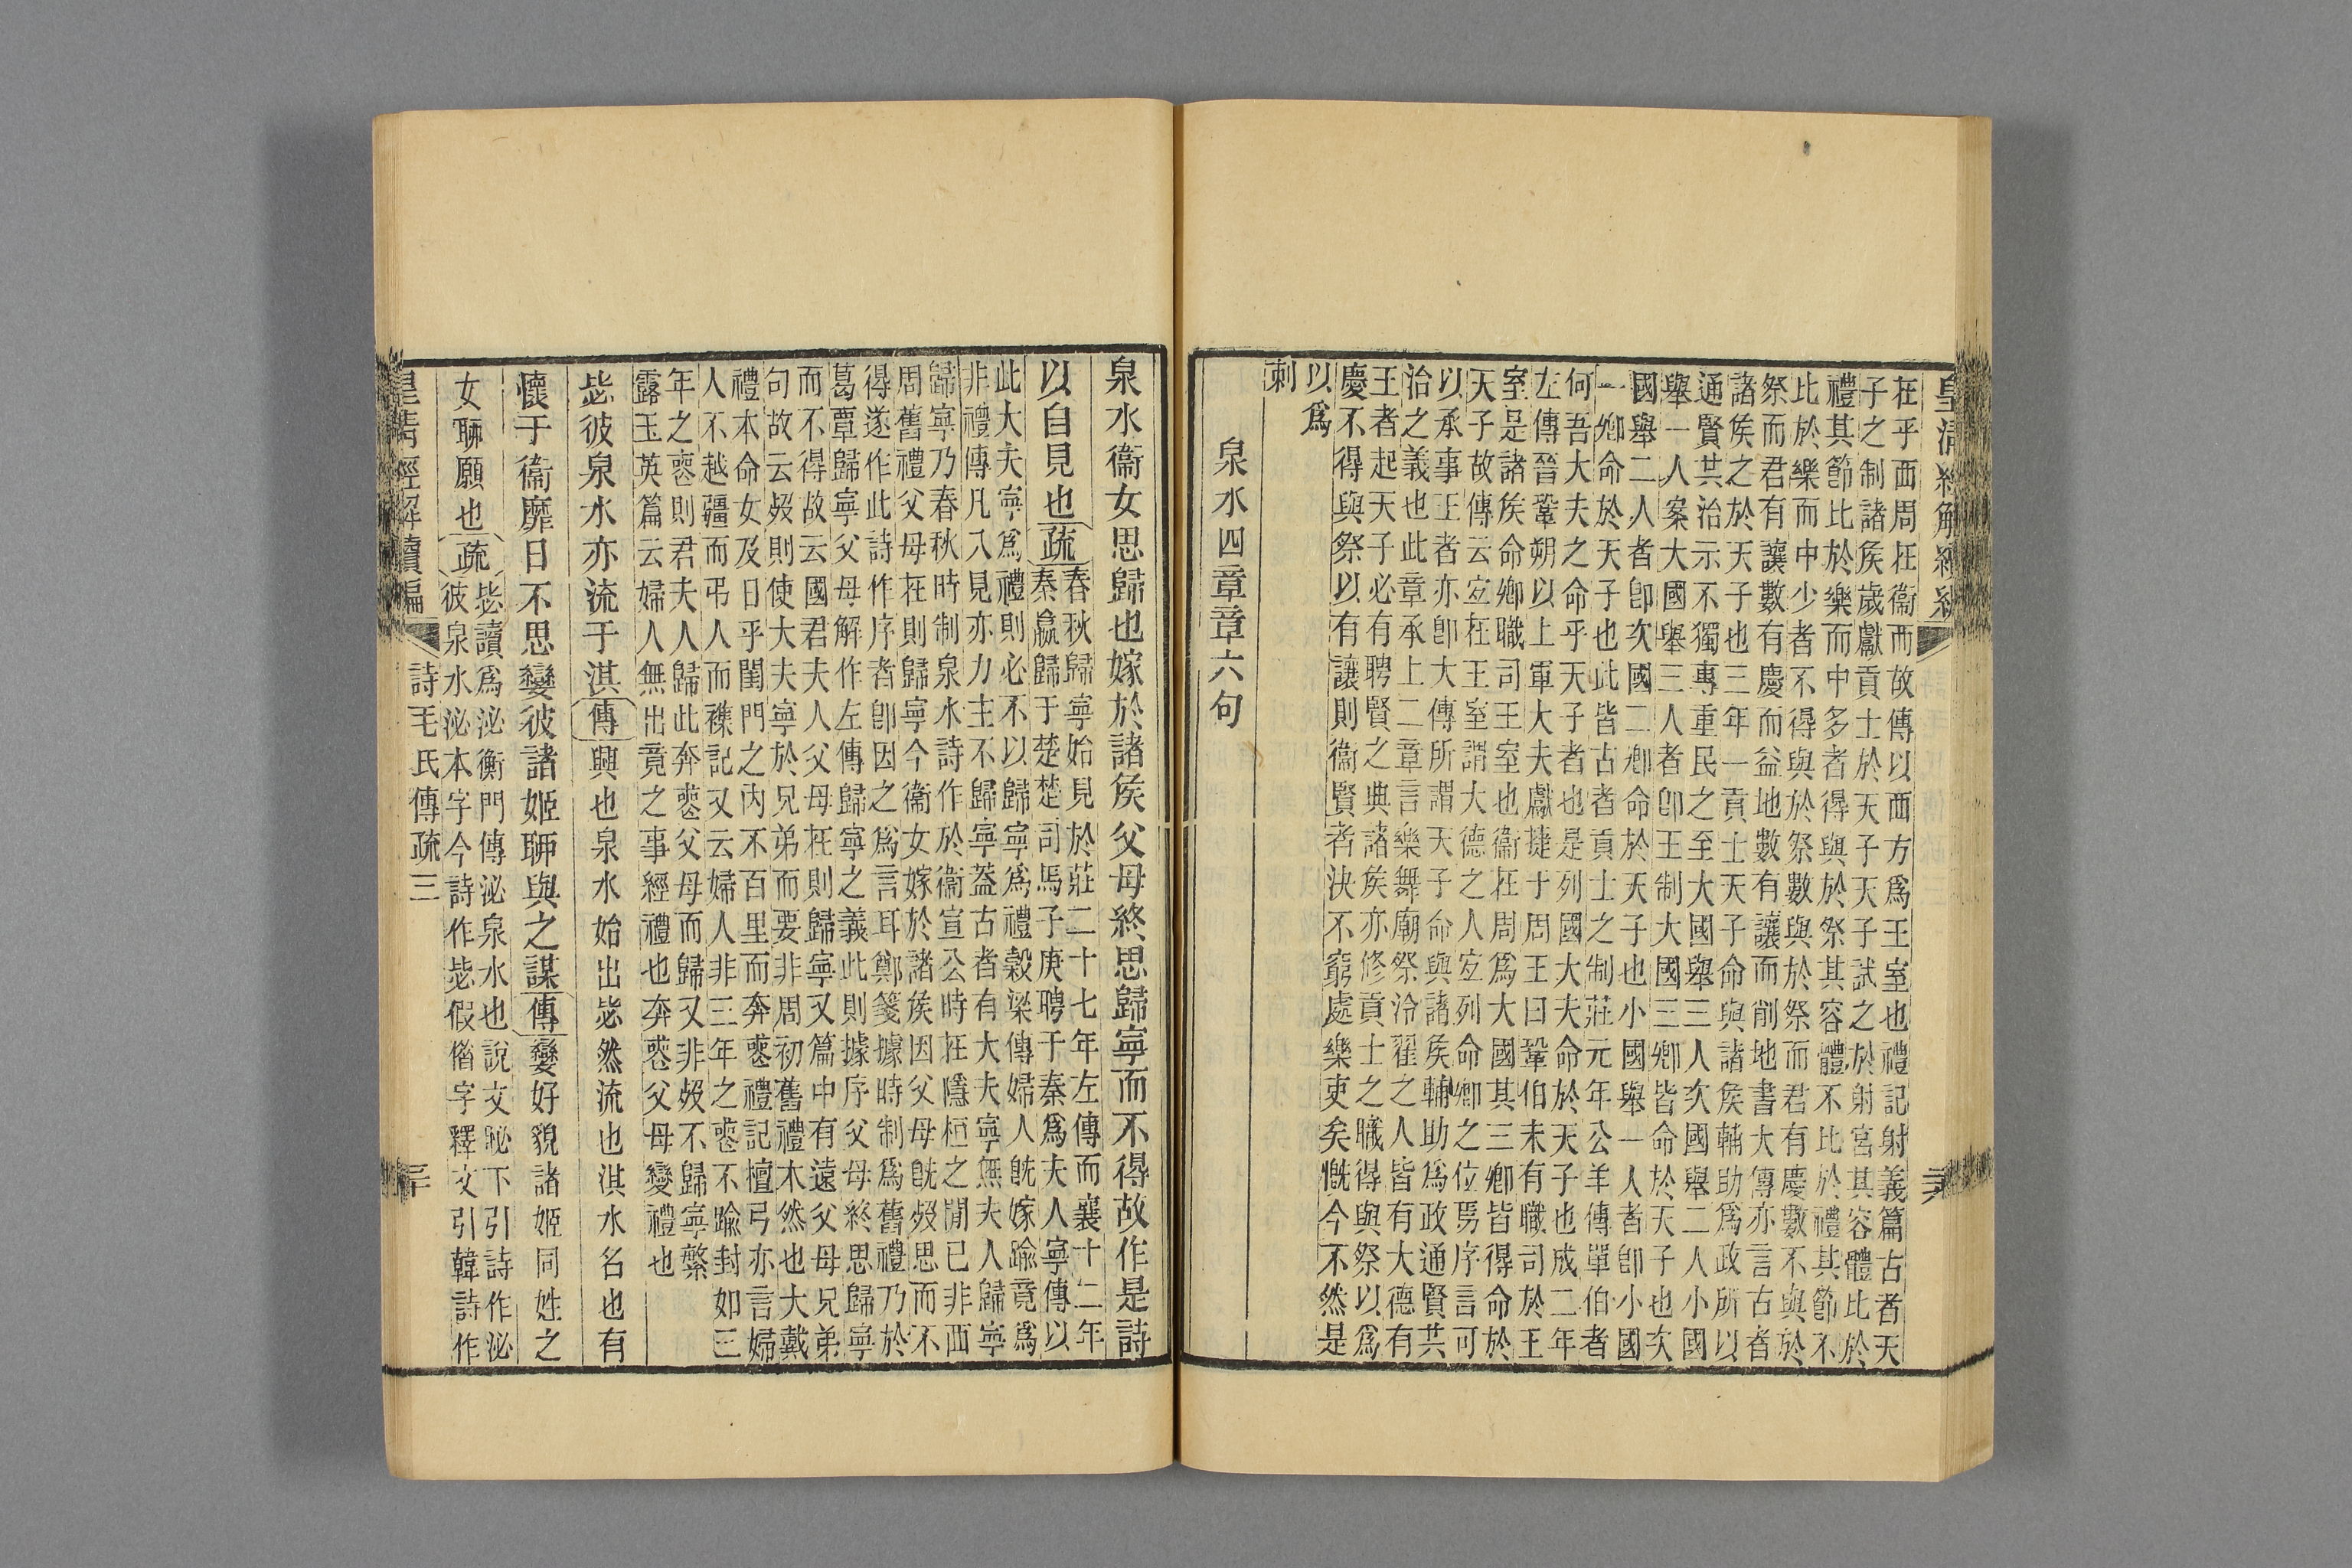 在乎西周在衞而故傳以西方爲王室也禮記射義篇古者天
子之制諸矦歲獻貢士於天子天子試之於射宮其容體比於
禮其節比於樂而中多者得與於祭其容體不比於禮其節不
比於樂而中少者不得與於祭數與於祭而君有慶數不與於
祭而君有讓數有慶而益地數有讓而削地書大傳亦言古者
諸矦之於天子也三年一貢士天子命與諸矦輔助爲政所以
通賢共治示不獨專重民之至大國舉三人次國舉二人小國
舉一人案大國舉三人者卽王制大國三卿皆命於天子也次
國舉二人者卽次國二卿命於天子也小國舉一人者卽小國
一卿命於天子也此皆古者貢士之制莊元年公羊傳單伯者
何吾大夫之命乎天子者也是列國大夫命於天子也成二年
左傳晉鞏朔以上軍大夫獻捷于周王曰鞏伯未有職司於王
室是諸矦命卿職司王室也衞在周爲大國其三卿皆得命於
天子故傳云宐在王室謂大德之人宐列命卿之位焉序言可
以承事王者亦卽大傳所謂天子命與諸矦輔助爲政通賢共
治之義也此章承上二章言樂舞廟祭泠翟之人皆有大德有
王者起天子必有聘賢之典諸矦亦修貢士之職得與祭以爲
慶不得與祭以有讓則衞賢者決不窮處樂吏矣慨今不然是
以爲
刺
泉水四章章六句
泉水衞女思歸也嫁於諸矦父母終思歸寧而不得故作是詩
以自見也疏
春秋歸寧始見於莊二十七年左傳而襄十二年
秦嬴歸于楚楚司馬子庚聘于秦爲夫人寧傳以
此大夫寧爲禮則必不以歸寧爲禮穀梁傳婦人旣嫁踰竟爲
非禮傳凡入見亦力主不歸寧葢古者有大夫寧無夫人歸寧
歸寧乃春秋時制泉水詩作於衞宣公時在隱桓之閒已非西
周舊禮父母在則歸寧今衞女嫁於諸矦因父母旣歿思而不
得遂作此詩作序者卽因之爲言耳鄭箋據時制爲舊禮乃於
葛覃歸寧父母解作左傳歸寧之義此則據序父母終思歸寧
而不得故云國君夫人父母在則歸寧又篇中有遠父母兄弟
句故云歿則使大夫寧於兄弟而要非周初舊禮木然也大戴
禮本命女及日乎閨門之内不百里而奔喪禮記檀弓亦言婦
人不越疆而弔人而襍記又云婦人非三年之喪不踰封如三
年之喪則君夫人歸此奔喪父母而歸又非歿不歸寧繁
露玉英篇云婦人無出竟之事經禮也奔喪父母變禮也
毖彼泉水亦流于淇傳興也泉水始出毖然流也淇水名也有
懷于衞靡日不思孌彼諸姬聊與之謀傳孌好貌諸姬同姓之
女聊願也疏
毖讀爲泌衡門傳泌泉水也說文䀣下引詩作泌
彼泉水泌本字今詩作毖假借字釋文引韓詩作
詩毛氏傳疏三